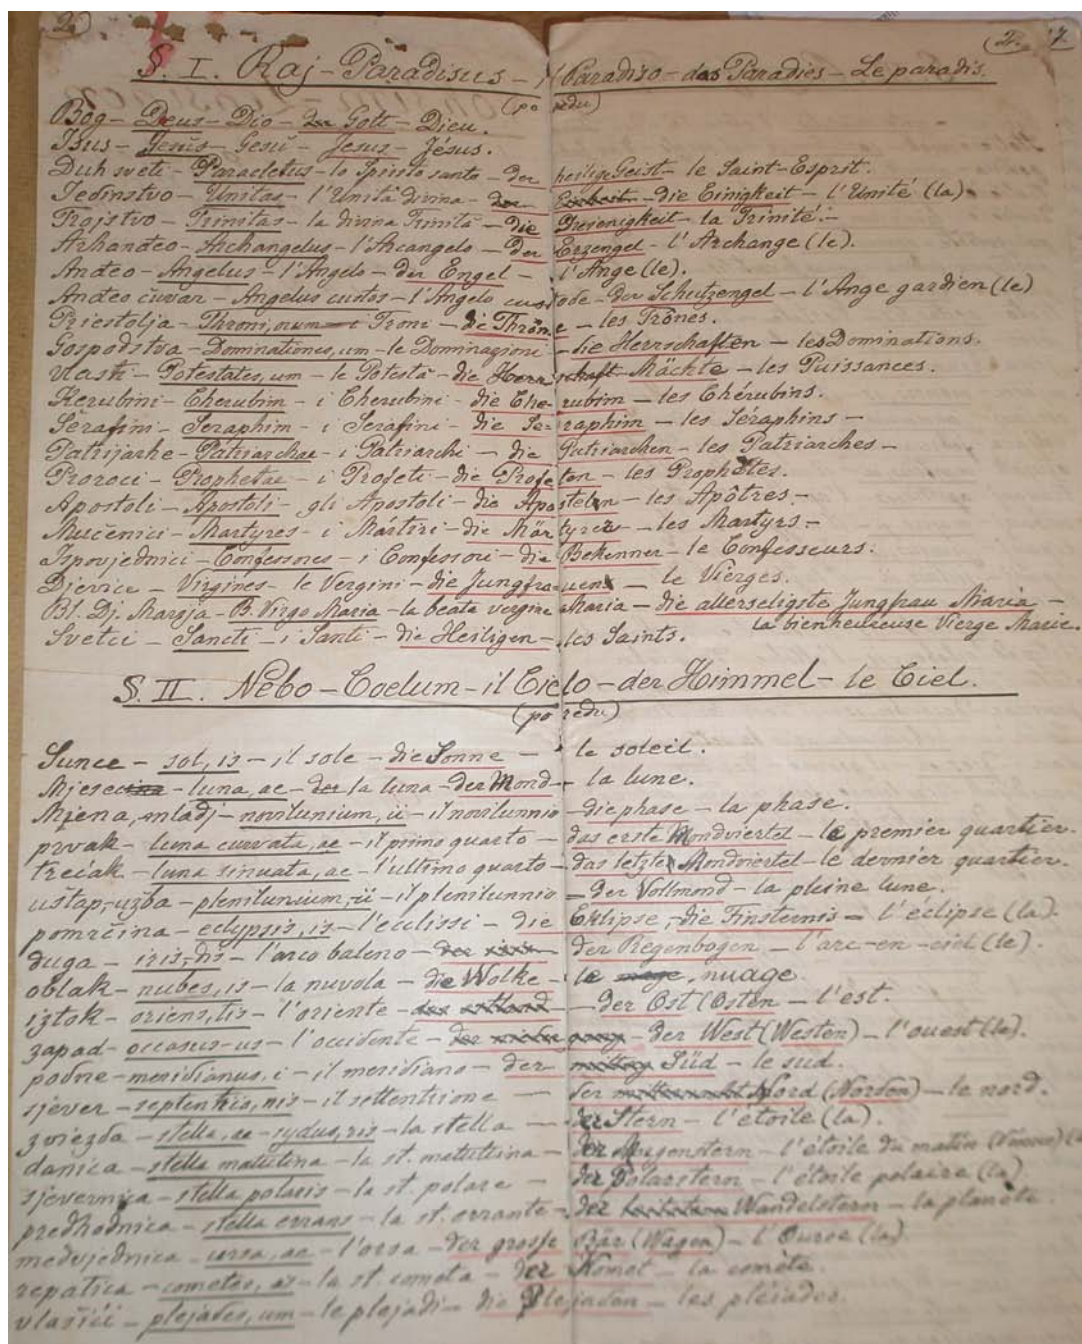 2.
2. 7.
§. I. Raj - Paradisus - il Paradiso - das Paradies - Le paradis.
(po redu)
Bog - Deus - Dio - der Gott - Dieu.
Isus - Jesus - Gesù - Jesus - Jésus.
Duh sveti - Paracletus - lo Spirito santo - der heilige Geist - le Saint-Esprit.
Jedinstvo - Unitas - l'Unità divina - die Einigkeit - l'Unité (la)
Trojstvo - Trinitas - la divina Trinità - die Dreienigkeit - la Trinité. -
Arhanđeo - Archangelus - l'Arcangelo - der Erzengel - l'Archange (le).
Anđeo - Angelus - l'Angelo - der Engel - l'Ange (le).
Anđeo čuvar - Angelus custos - l'Angelo custode - der Schutzengel - l'Ange gardien (le)
Priestolja - Throni, orum - i Troni - die Throne - les Trônes.
Gospodstva - Dominationes, um - le Dominazioni - die Herrschaften - les Dominations.
Vlasti - Potestates, um - le Potestà - die Herrschaft Mächte - les Puissances.
Kerubini - Cherubim - i Cherubini - die Cherubim - les Chérubins.
Serafini - Seraphim - i Serafini - die Seraphim - les Séraphins -
Patrijarhe - Patriarchae - i Patriarchi - die Patriarchen - les Patriarches -
Proroci - Prophetae - i Profeti - die Profeten - les Prophètes.
Apostoli - Apostoli - gli Apostoli - die Aposteln - les Apôtres -
Mučenici - Martyres - i Mártiri - die Märtyrer - les Martyrs -
Ispovjednici - Confessores - i Confessori - die Bekenner - le Confesseurs.
Djevice - Virgines - le Vergini - die Jungfrauen - le Vierges.
Bl. Dj. Marija - B. Virgo Maria - la beata vergine Maria - die allerseligste Jungfrau Maria -
la bienheureuse Vierge Marie.
Svetci - Sancti - i Santi - die Heiligen - les Saints.
§. II. Nebo - Coelum - il Cielo - der Himmel - le Ciel.
(po redu)
Sunce - sol, is - il sole - die Sonne - le soleil.
Mjesecina - luna, ae - la luna - der Mond - la lune.
Mjena, mladj - novilunium, ii - il novilunnio - die phase - la phase.
prvak - luna curvata, ae - il primo quarto - das erste Mondviertel - le premier quartier.
trećak - luna sinuata, ae - l'ultimo quarto - das letzte Mondviertel - le dernier quartier.
uštap, užba - plenilunium, ii - il plenilunnio - der Vollmond - la pleine lune.
pomrčina - eclypsis, is - l'ecclissi - die Eklipse, die Finsternis - l'éclipse (la).
duga - iris, dis - l'arco baleno - der Regenbogen - l'arc-en-ciel (le).
oblak - nubes, is - la nuvola - die Wolke - le nuage
iztok - oriens, tis - l'oriente - der Ost (Osten - l'est.
zapad - occasus-us - l'occidente - der West (Westen) - l'ouest (le).
podne - meridianus, i - il meridiano - der Süd - le sud.
sjever - septentrio, nis - il settentrione - der Nord (Norden) - le nord.
zviezda - stella, ae - sydus, ris - la stella - der Stern - l'étoile (la).
danica - stella matutina - la st. matuttina - der Morgenstern - l'étoile du matin
sjevernica - stella polaris - la st. polare - der Polarstern - l'étoile polaire (la)
predhodnica - stella errans - la st. errante - der Wandelstern - la planéte
medvjednica - ursa, ae - l'orsa - der grosse Bär (Wagen) - l'Ourse (la).
repatica - cometes, ae - la st. cometa - der Komet - la comète.
vlašići - plejades, um - le plejadi - die Plejaden - les pléiades.